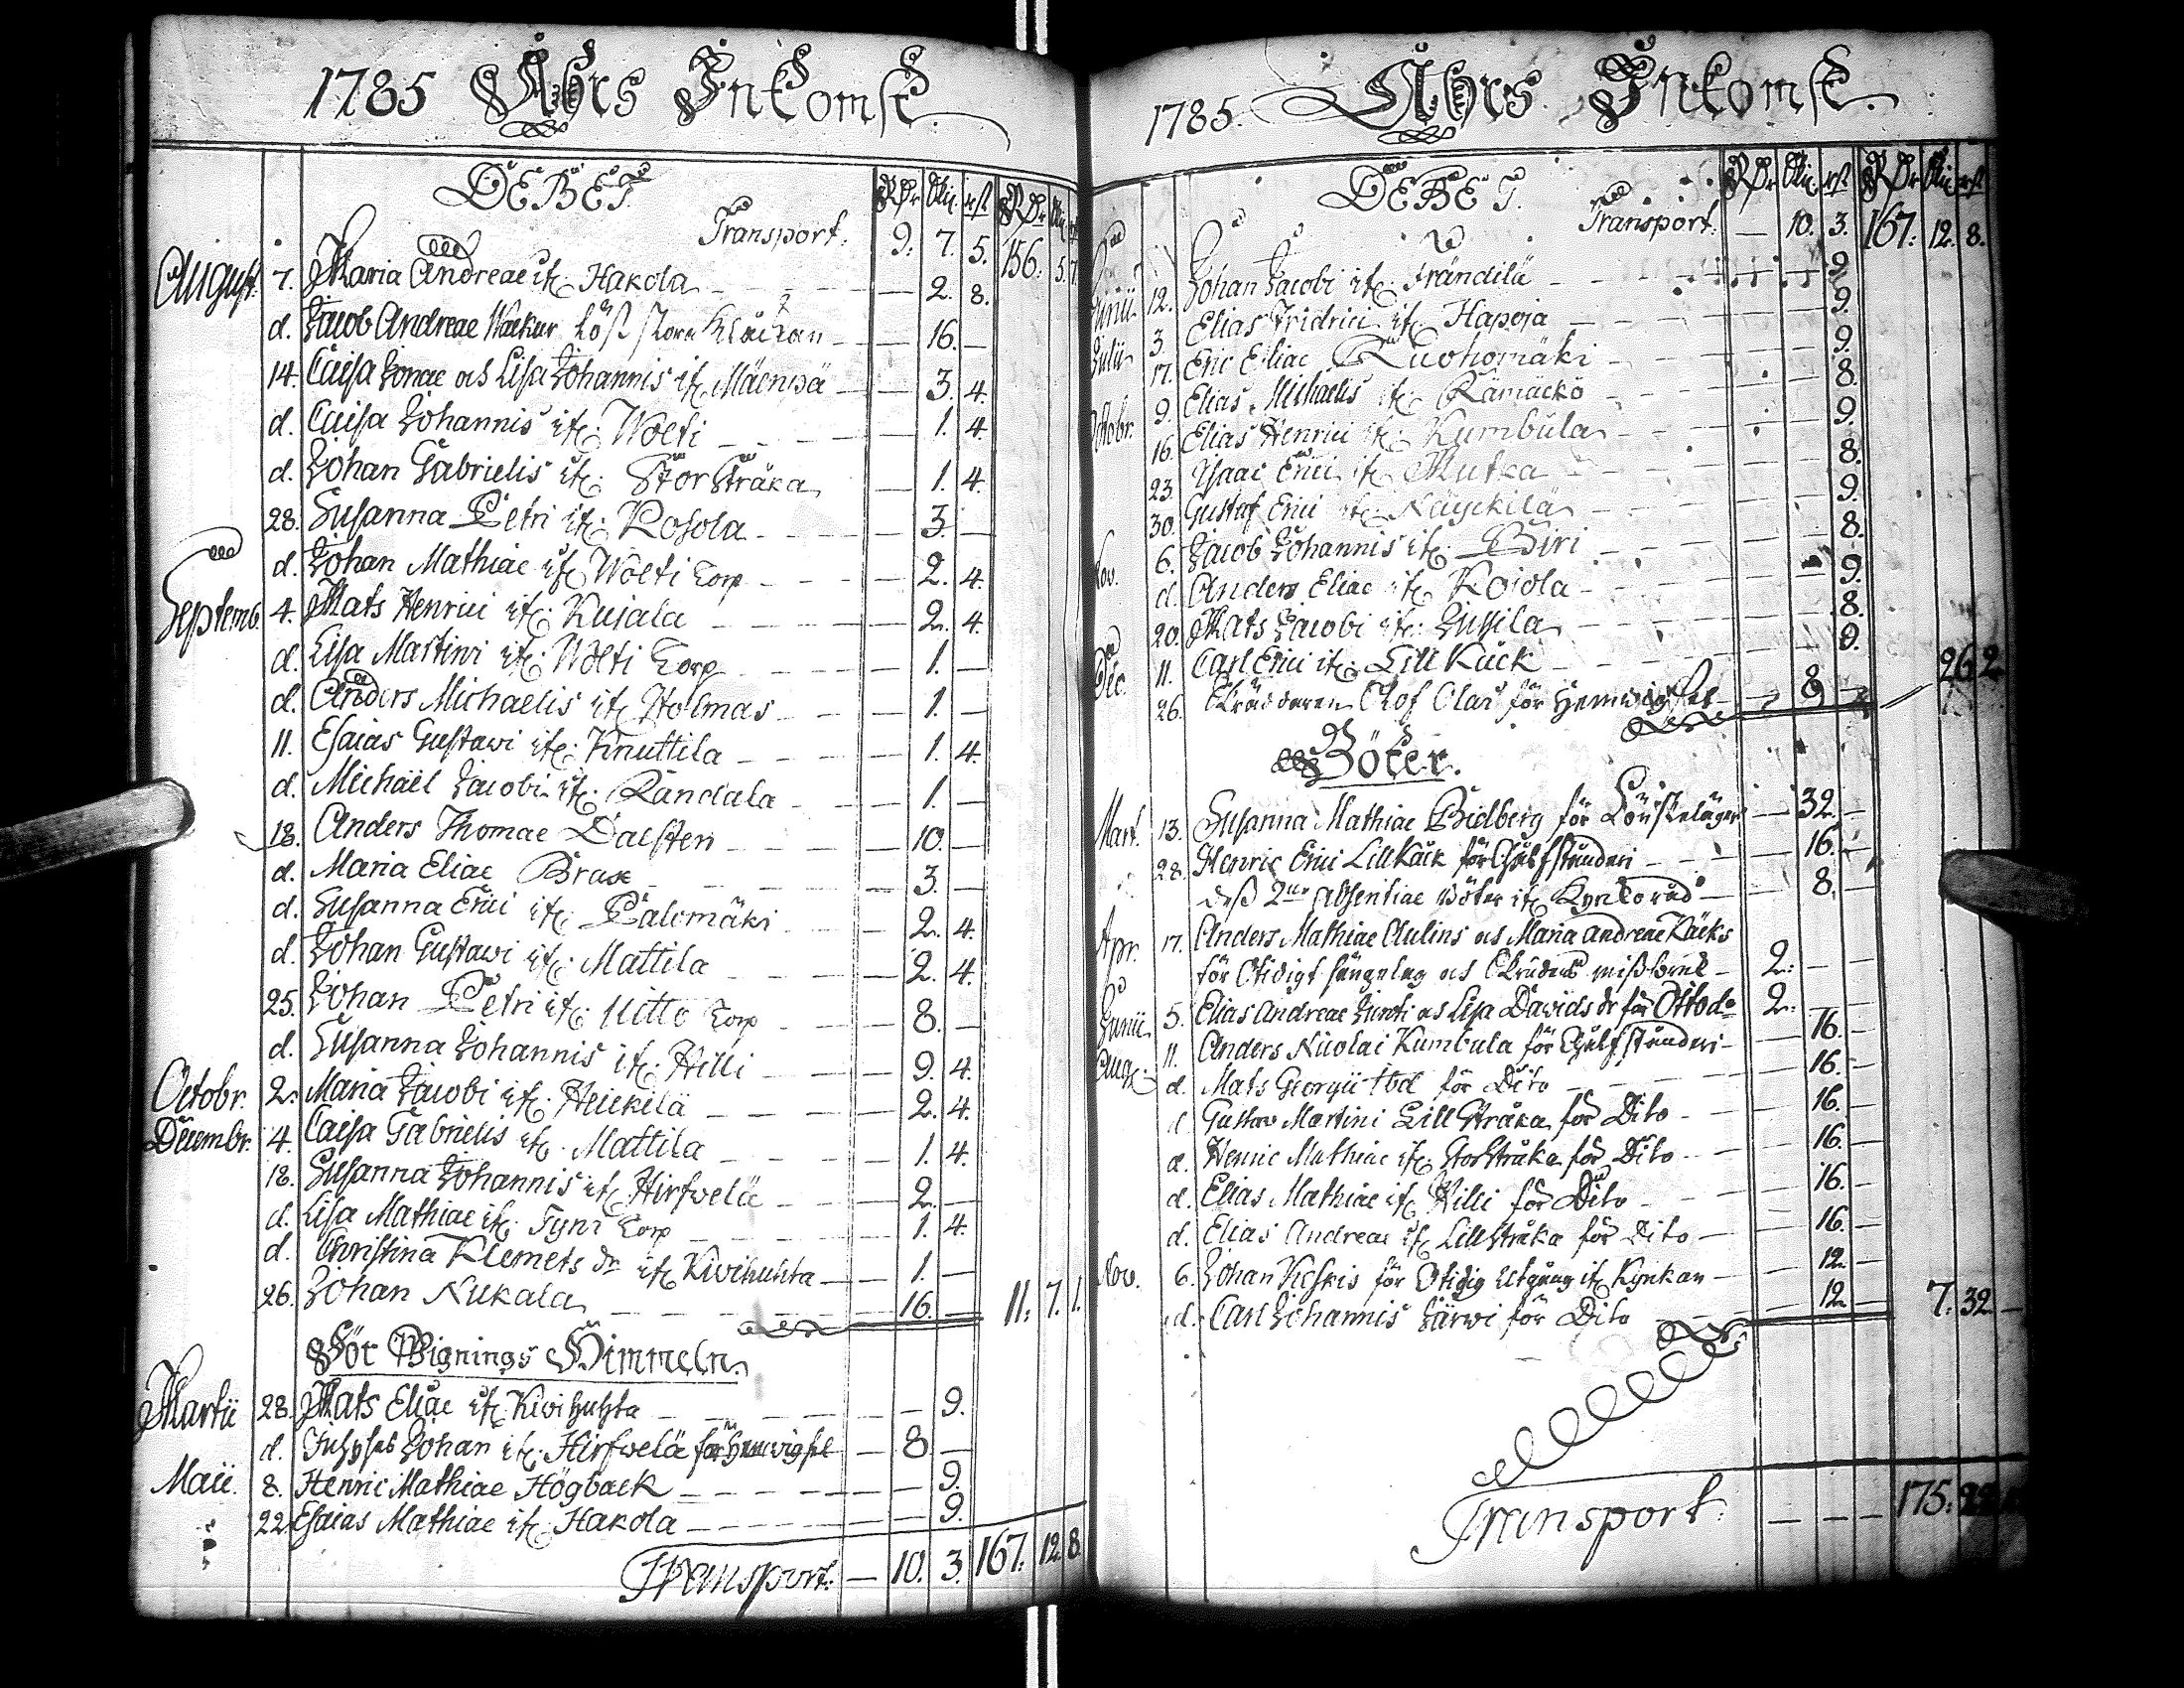 1785 Åhrs Inkomst.
DEBET. RDr Skil. rst RDr Skil. rst
Transport. 9. 7. 5. 156. 5. 7.
August. 7. Maria Andreae if. Hakola — 2. 8.
d. Jacob Andreae Wacker löst stora Klåckan — 16. —
14. Caisa Jonae och Lisa Johannis if. Mäenpä — 3. 4.
d. Caisa Johannis if. Wolti — 1. 4.
d. Johan Gabrielis if. Storstråka — 1. 4.
28. Susanna Petri if. Rosola — 3. —
d. Johan Mathiae if. Wolti Torp — 2. 4.
Septemb. 4. Mats Henrici if. Kujala — 2. 4.
d. Lisa Martini if. Wolti Torp — 1. —
d. Anders Michaelis if. Holmas — 1. —
11. Esaias Gustawi if. Knuttila — 1. 4.
d. Michaël Jacobi if. Randala — 1. —
18. Anders Thomae Dalsten — 10. —
d. Maria Eliae Brax — 3. —
d. Susanna Erici if. Palomäki — 2. 4.
d. Johan Gustawi if. Mattila — 2. 4.
25. Johan Petri if. Uitto Torp — 8. —
d. Susanna Johannis if. Hilli — 9. 4.
Octobr. 2. Maria Jacobi if. Heickilä — 2. 4.
Decembr. 4. Caisa Gabrielis if. Mattila — 1. 4.
18. Susanna Johannis if. Hirfwelä — 2. —
d. Lisa Mathiae if. Tyni Torp — 1. 4.
d. Christina Klemets dr if. Kiwihuhta — 1. —
26. Johan Nukala — 16. — 11. 7. 1.
För Wignings Himmeln.
Martii 28. Mats Eliae if. Kiwihuhta — 9.
d. Johan if. Hirfwelä för Hemwigsel — 8. —
Maii. 8. Henric Mathiae Högback — 9.
22. Esaias Mathiae if. Hakola — 9.
Transport. — 10. 3. 167. 12. 8.
1785. Åhrs Inkomst.
DEBET. RDr Skil. rst RDr Skil. rst
Transport. — 10. 3. 167. 12. 8.
Junii 12. Johan Jacobi if. Frändilä — 9.
Julii 3. Elias Fridrici if. Hapoja — 9.
17. Eric Eliae Ruohomäki — 9.
Octobr. 9. Elias Michaelis if. Rämäckö — 8.
16. Elias Henrici if. Kumbula — 9.
23. Isaac Erici if. Mutka — 8.
30. Gustaf Erici if. Näyckilä — 9.
Nov. 6. Jacob Johannis if. Biri — 8.
d. Anders Eliae if. Kojola — 9.
20. Mats Jacobi if. Jussila — 8.
Dec. 11. Carl Erici if. Lill Kåck — 9.
26. Skräddaren Olof Olai för Hemwigsel — 8. — 26. 2.
Böter.
Mart. 13. Susanna Mathiae Bidberg för Lönskeläger — 32. —
28. Henric Erici Lill Kåck för — 16. —
dess 2ne Absentiae Böter if. Kyrkoråd — 8. —
Apr. 17. Anders Mathiae Aulins och Maria Andreae Käcks
för Otidigt sängelag och missbruk — 2. — —
Junii 5. Elias Andreae och Lisa Dawids dr för Otto do 2.
Aug. 11. Anders Nicolai Kumbula för — 16. —
d. Mats Georgii ibd för Dito — 16. —
d. Gustaw Martini Lill Stråka för Dito — 16. —
d. Henric Mathiae if. Stor Stråka för Dito — 16. —
d. Elias Mathiae if. Hilli för Dito — 16. —
d. Elias Andreae if. Lill Stråka för Dito — 16. —
Nov. 6. Johan Keskis för Otidig Utgång if. Kyrkan — 12. —
d. Carl Johannis Järwi för Dito — 12. — 7. 32. —
Transport. — — — 175. 22.